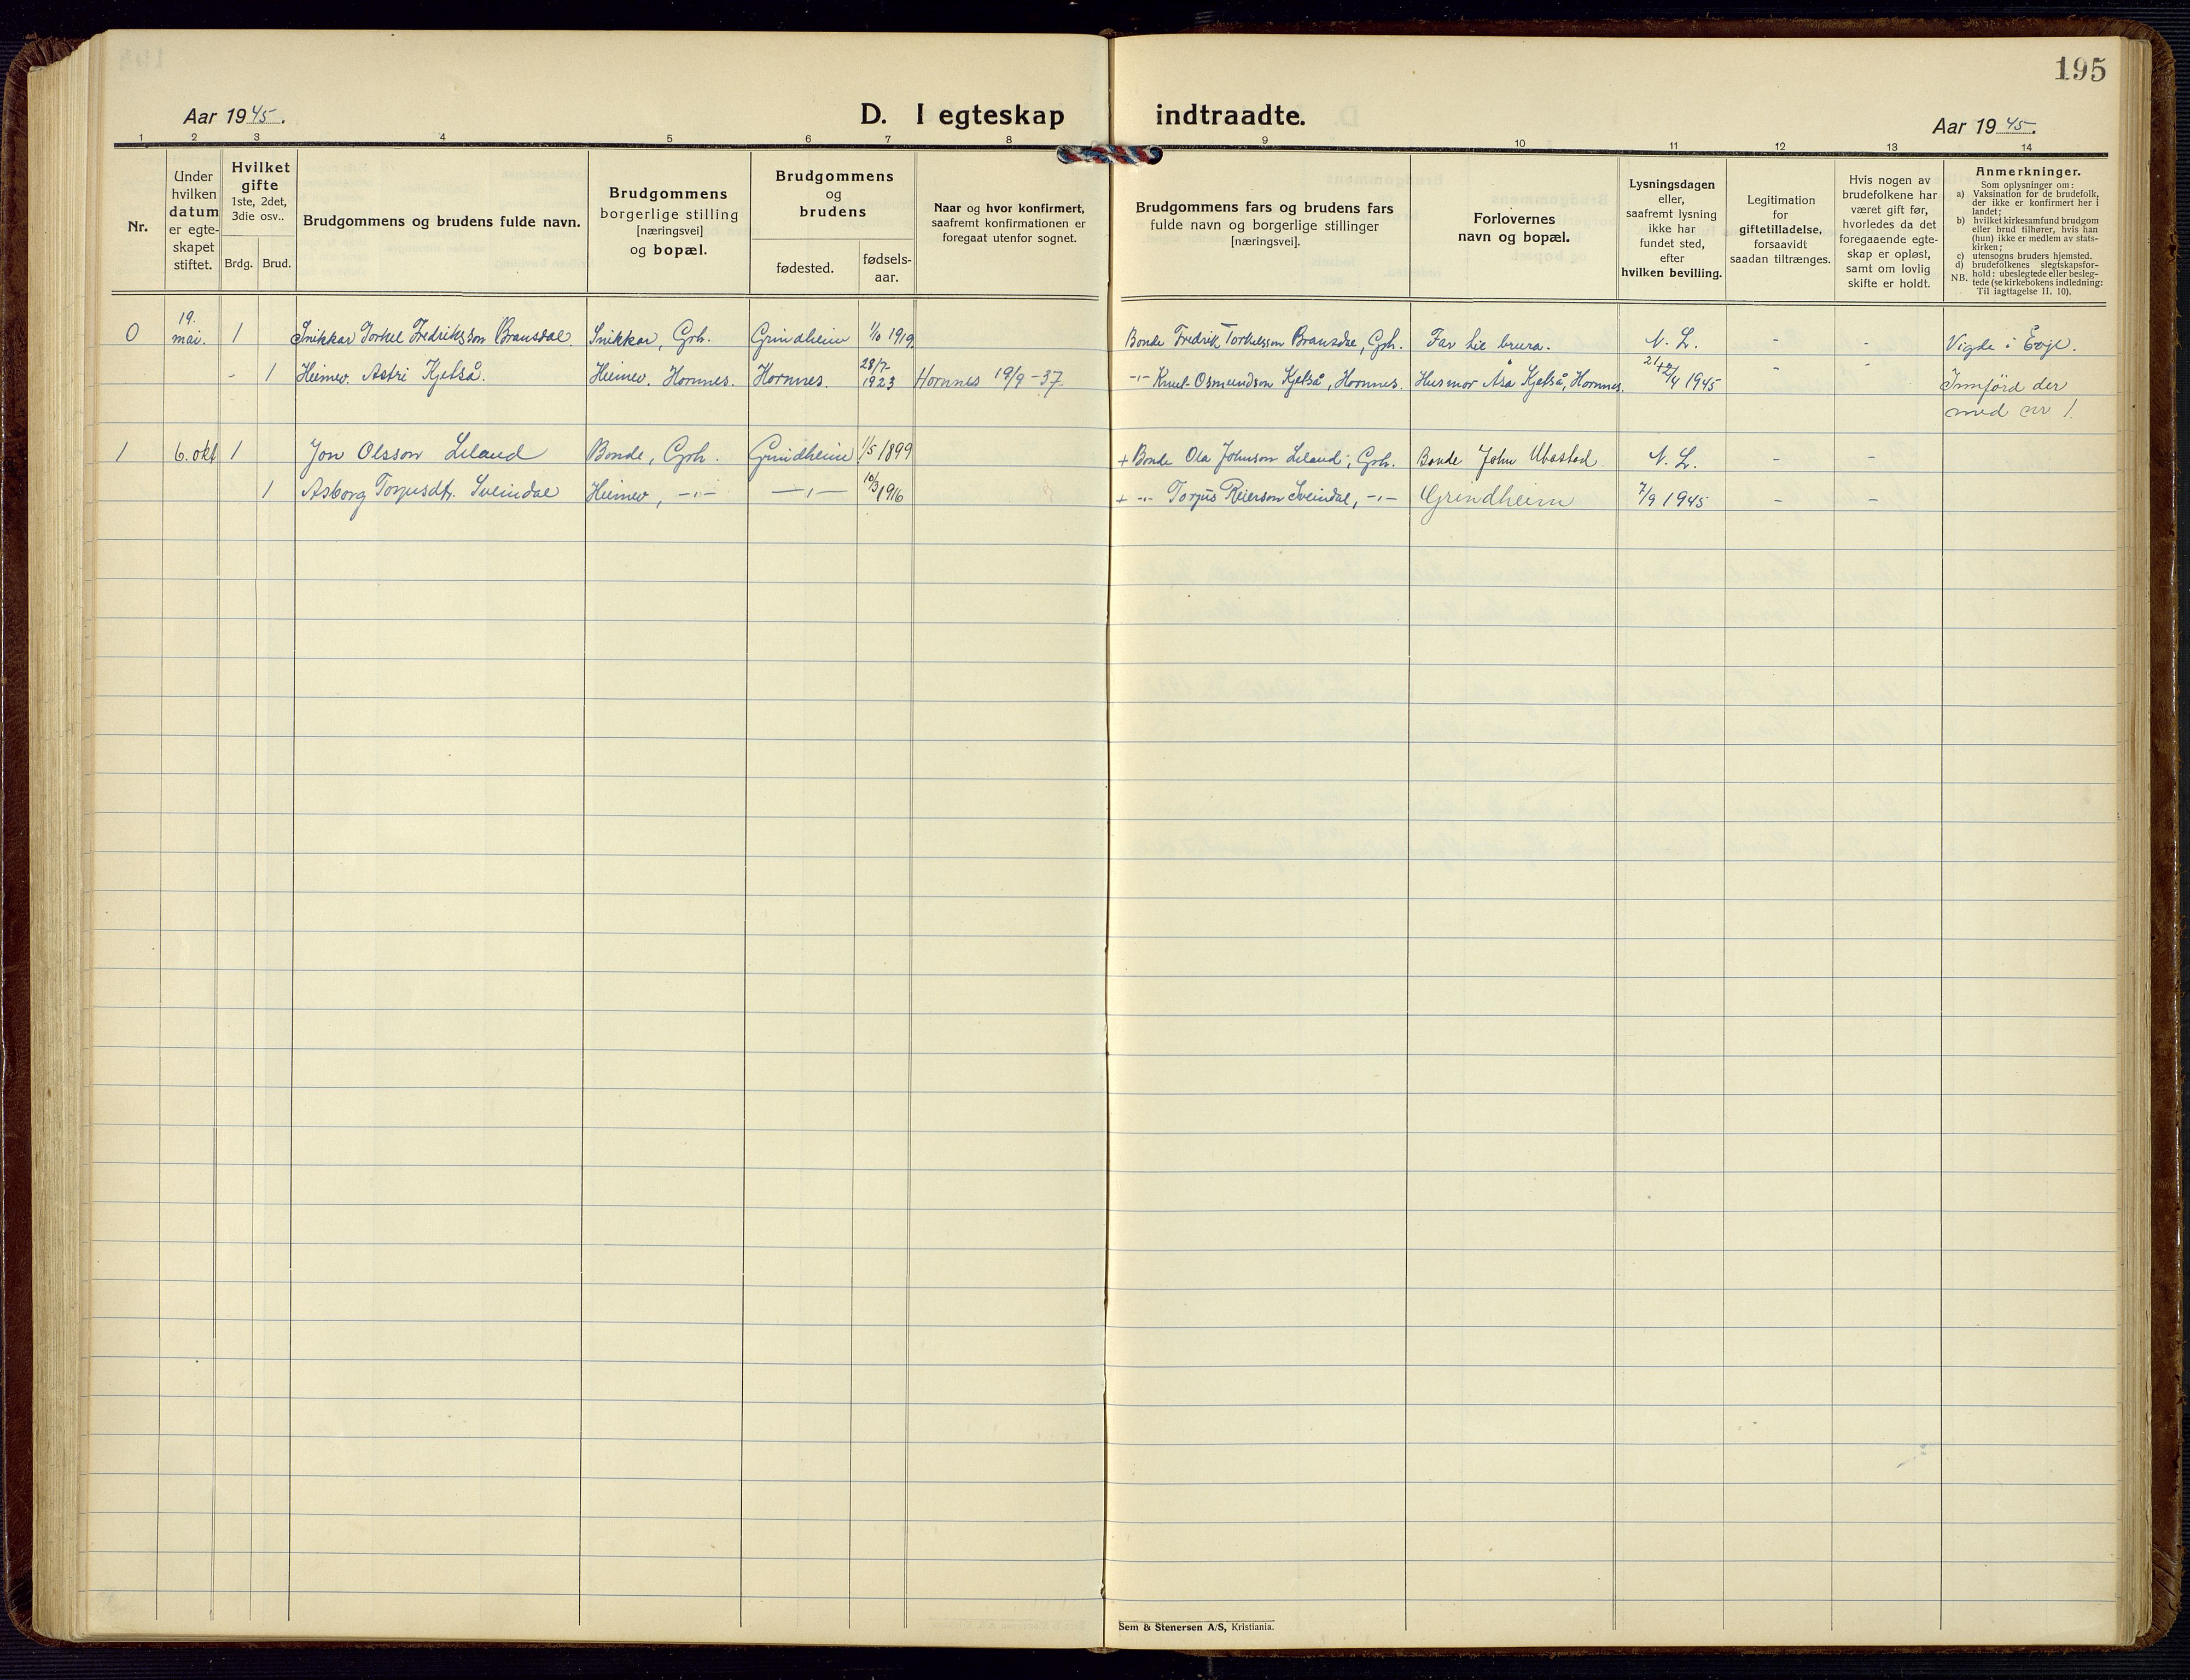 195
Aar 1945.
D. I egteskap indtraadte.
Aar 1945.
1 2 3 4 5 6 7 8 9 10 11 12 13 14
Nr.
Under hvilken datum er egte-skapet stiftet.
Hvilket gifte 1ste, 2det, 3die osv..
Brdg. Brud.
Brudgommens og brudens fulde navn.
Brudgommens borgerlige stilling [næringsvei] og bopæl.
Brudgommens og brudens
fødested.
fødsels-aar.
Naar og hvor konfirmert, saafremt konfirmationen er foregaat utenfor sognet.
Brudgommens fars og brudens fars fulde navn og borgerlige stillinger [næringsvei].
Forlovernes navn og bopæl.
Lysningsdagen eller, saafremt lysning ikke har fundet sted, efter hvilken bevilling.
Legitimation for giftetilladelse, forsaavidt saadan tiltrænges.
Hvis nogen av brudefolkene har været gift før, hvorledes da det foregaaende egte-skap er opløst, samt om lovlig skifte er holdt.
Anmerkninger.
Som oplysninger om:
a) Vaksination for de brudefolk, der ikke er konfirmert her i landet;
b) hvilket kirkesamfund brudgom eller brud tilhører, hvis han (hun) ikke er medlem av stats-kirken;
c) utensogns bruders hjemsted.
d) brudefolkenes slegtskapsfor-hold: ubeslegtede eller besleg-tede (se kirkebokens indledning:
NB. Til iagttagelse II. 10).
0 19. mai. 1 Snikkar Torkel Fredriksson Bransdal. Snikkar, Grh. Grindheim 1/10 1919. Bonde Fredrik Torkelsson Bransdal, Grh. Far til brura. N. L. - - Vigde i Evje.
- 1 Heimev. Astri Kjetså. Heimev. Hornnes. Hornnes. 28/7 1923 Hornnes 19/9-37. -"- Knut Osmundson Kjetså, Hornnes. Husmor Åsa Kjetså, Hornnes. 21+22/4 1945 - - Innförd der
med nr 1.
1 6. okt 1 Jon Olsson Liland Bonde, Grh. Grindheim 1/5 1899 + Bonde Ola Johnson Liland, Grh. Bonde John Ubostad N. L. - -
1 Asborg Torjusdt. Sveindal Heimev, -"- -"- 10/3 1916 + -"- Torjus Reierson Sveindal, -"- Grindheim 7/9 1945 - -
Sem & Stenersen A/S, Kristiania.